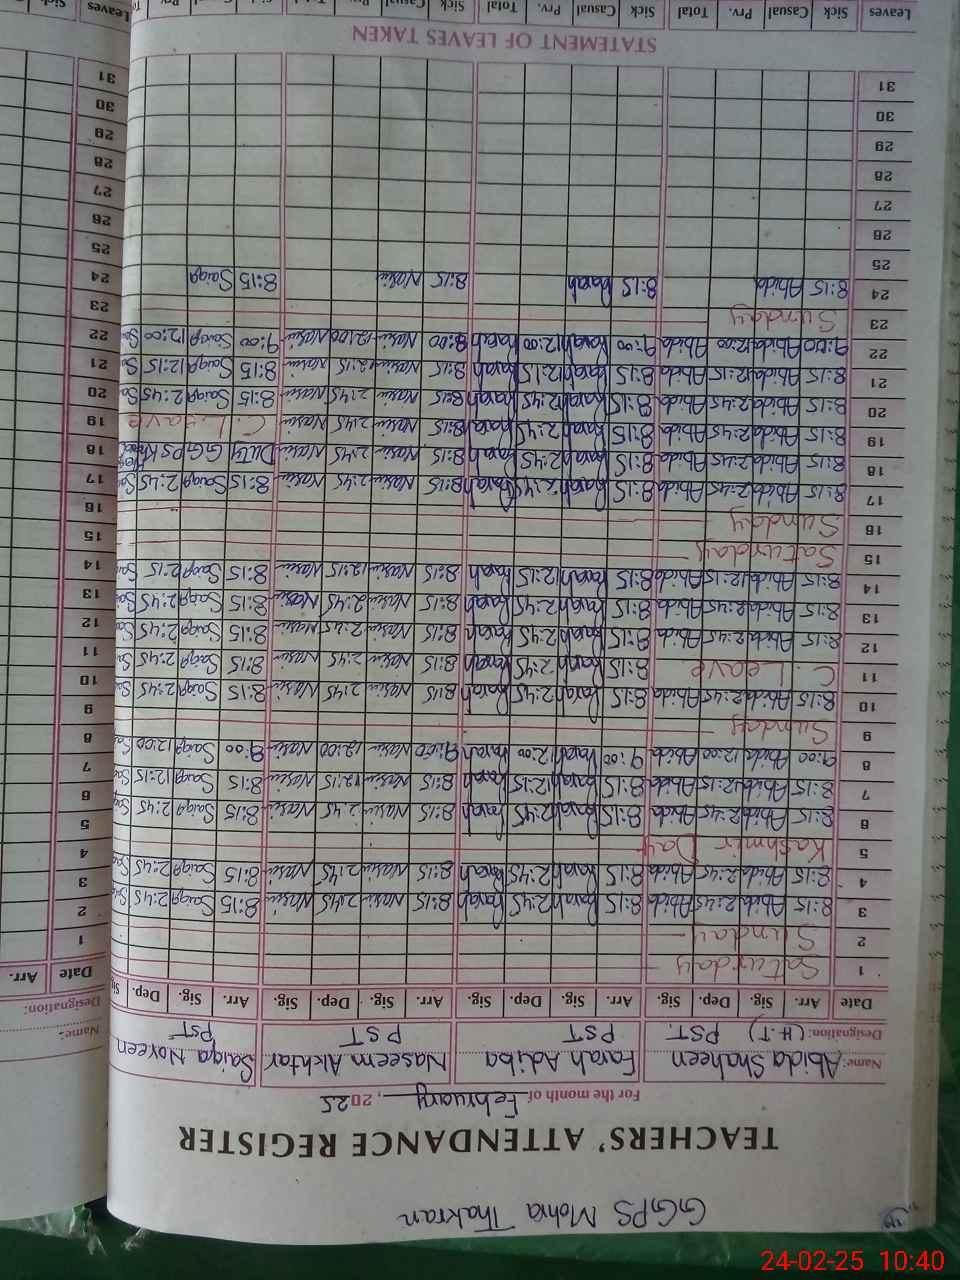 GGPS Mohra Thakran
TEACHERS' ATTENDANCE REGISTER
For the month of February, 2025
Name: Abida Shaheen Farah Adiba Naseem Akhtar Saiqa Noreen
Designation: (H.T) PST. PST PST PST
Date Arr. Sig. Dep. Sig. Arr. Sig. Dep. Sig. Arr. Sig. Dep. Sig. Arr. Sig. Dep.
1 Saturday
2 Sunday
3 8:15 Abida 2:45 Abida 8:15 Farah 2:45 Farah 8:15 Nasim 2:45 Nasim 8:15 Saiqa 2:45
4 8:15 Abida 2:45 Abida 8:15 Farah 2:45 Farah 8:15 Nasim 2:45 Nasim 8:15 Saiqa 2:45
5 Kashmir Day
6 8:15 Abida 2:45 Abida 8:15 Farah 2:45 Farah 8:15 Nasim 2:45 Nasim 8:15 Saiqa 2:45
7 8:15 Abida 12:15 Abida 8:15 Farah 12:15 Farah 8:15 Nasim 12:15 Nasim 8:15 Saiqa 12:15
8 9:00 Abida 12:00 Abida 9:00 Farah 12:00 Farah 9:00 Nasim 12:00 Nasim 9:00 Saiqa 12:00
9 Sunday
10 8:15 Abida 2:45 Abida 8:15 Farah 2:45 Farah 8:15 Nasim 2:45 Nasim 8:15 Saiqa 2:45
11 C. Leave 8:15 Farah 2:45 Farah 8:15 Nasim 2:45 Nasim 8:15 Saiqa 2:45
12 8:15 Abida 2:45 Abida 8:15 Farah 2:45 Farah 8:15 Nasim 2:45 Nasim 8:15 Saiqa 2:45
13 8:15 Abida 2:45 Abida 8:15 Farah 2:45 Farah 8:15 Nasim 2:45 Nasim 8:15 Saiqa 2:45
14 8:15 Abida 12:15 Abida 8:15 Farah 12:15 Farah 8:15 Nasim 12:15 Nasim 8:15 Saiqa 12:15
15 Saturday
16 Sunday
17 8:15 Abida 2:45 Abida 8:15 Farah 2:45 Farah 8:15 Nasim 2:45 Nasim 8:15 Saiqa 2:45
18 8:15 Abida 2:45 Abida 8:15 Farah 2:45 Farah 8:15 Nasim 2:45 Nasim Duty GGPS
19 8:15 Abida 2:45 Abida 8:15 Farah 2:45 Farah 8:15 Nasim 2:45 Nasim C. Leave
20 8:15 Abida 2:45 Abida 8:15 Farah 2:45 Farah 8:15 Nasim 2:45 Nasim 8:15 Saiqa 2:45
21 8:15 Abida 12:15 Abida 8:15 Farah 12:15 Farah 8:15 Nasim 12:15 Nasim 8:15 Saiqa 12:15
22 9:00 Abida 12:00 Abida 9:00 Farah 12:00 Farah 9:00 Nasim 12:00 Nasim 9:00 Saiqa 12:00
23 Sunday
24 8:15 Abida 8:15 Farah 8:15 Nasim 8:15 Saiqa
25
26
27
28
29
30
31
STATEMENT OF LEAVES TAKEN
Leaves Sick Casual Prv. Total Sick Casual Prv. Total Sick Casual Prv. Total Sick Casual Prv.
Name:
Designation:
Date Arr.
1
2
3
4
5
6
7
8
9
10
11
12
13
14
15
16
17
18
19
20
21
22
23
24
25
26
27
28
29
30
31
Leaves Sick
24-02-25 10:40